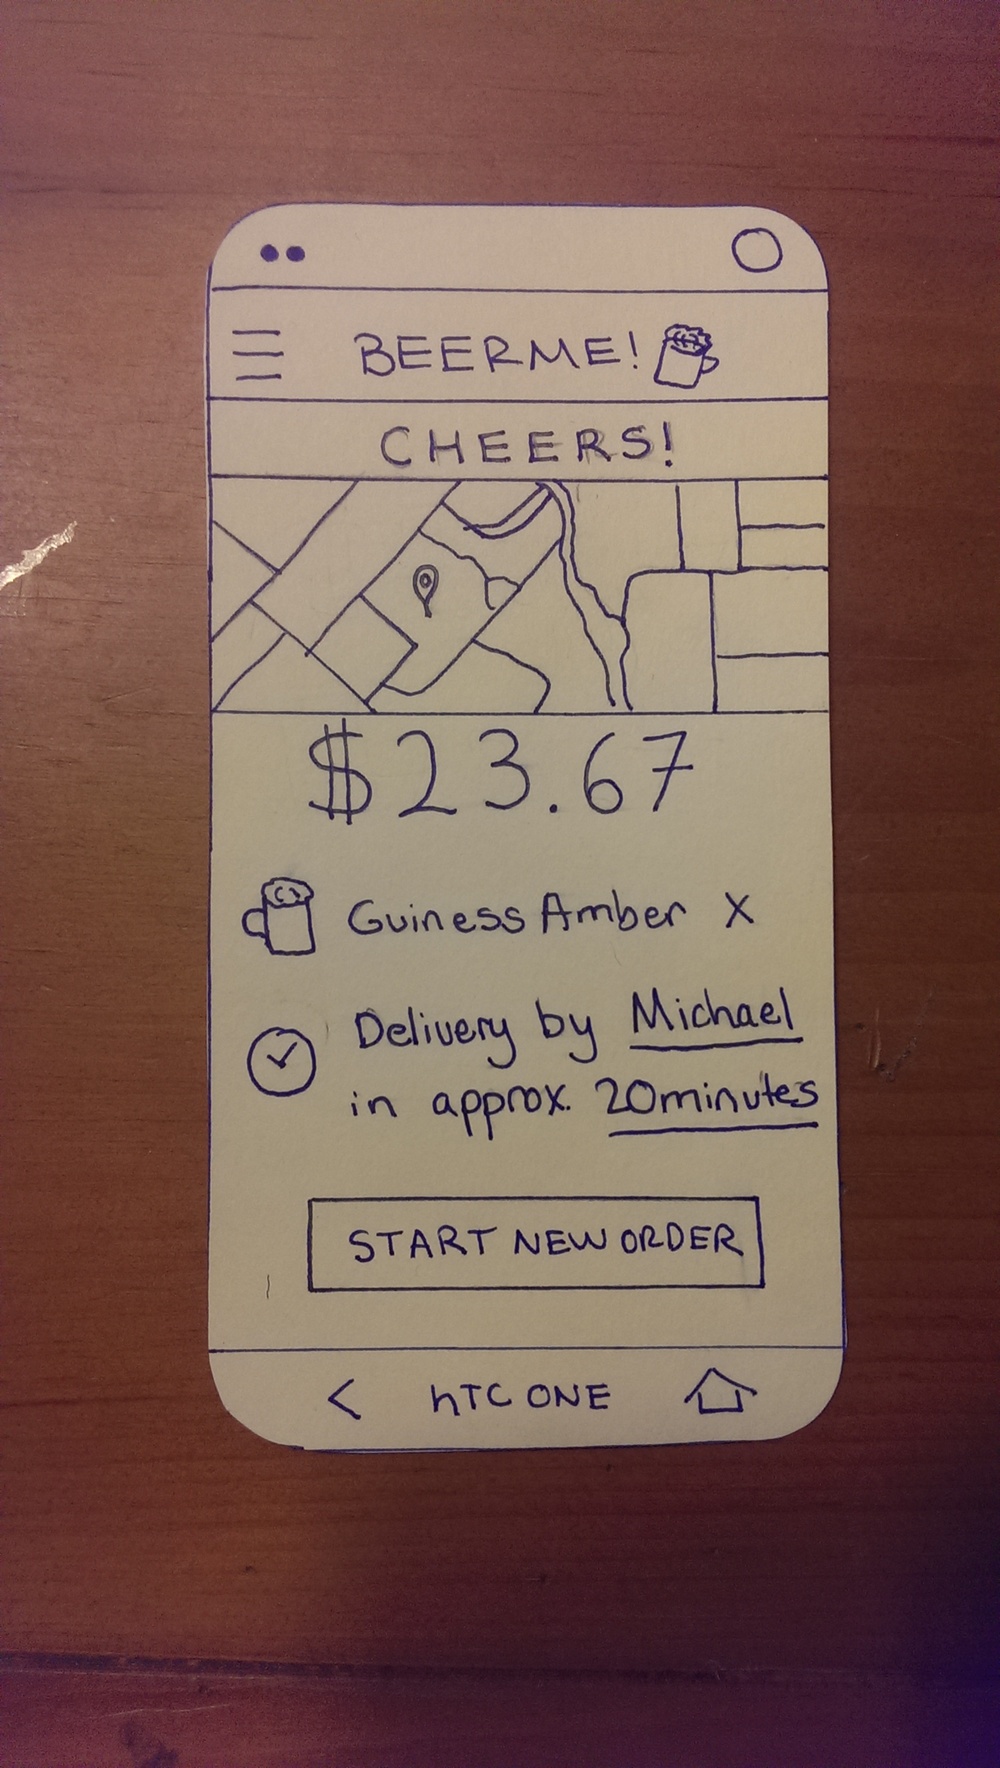 BEERME!
CHEERS!
$23.67
Guiness Amber X
Delivery by Michael
in approx. 20minutes
START NEW ORDER
< hTC ONE